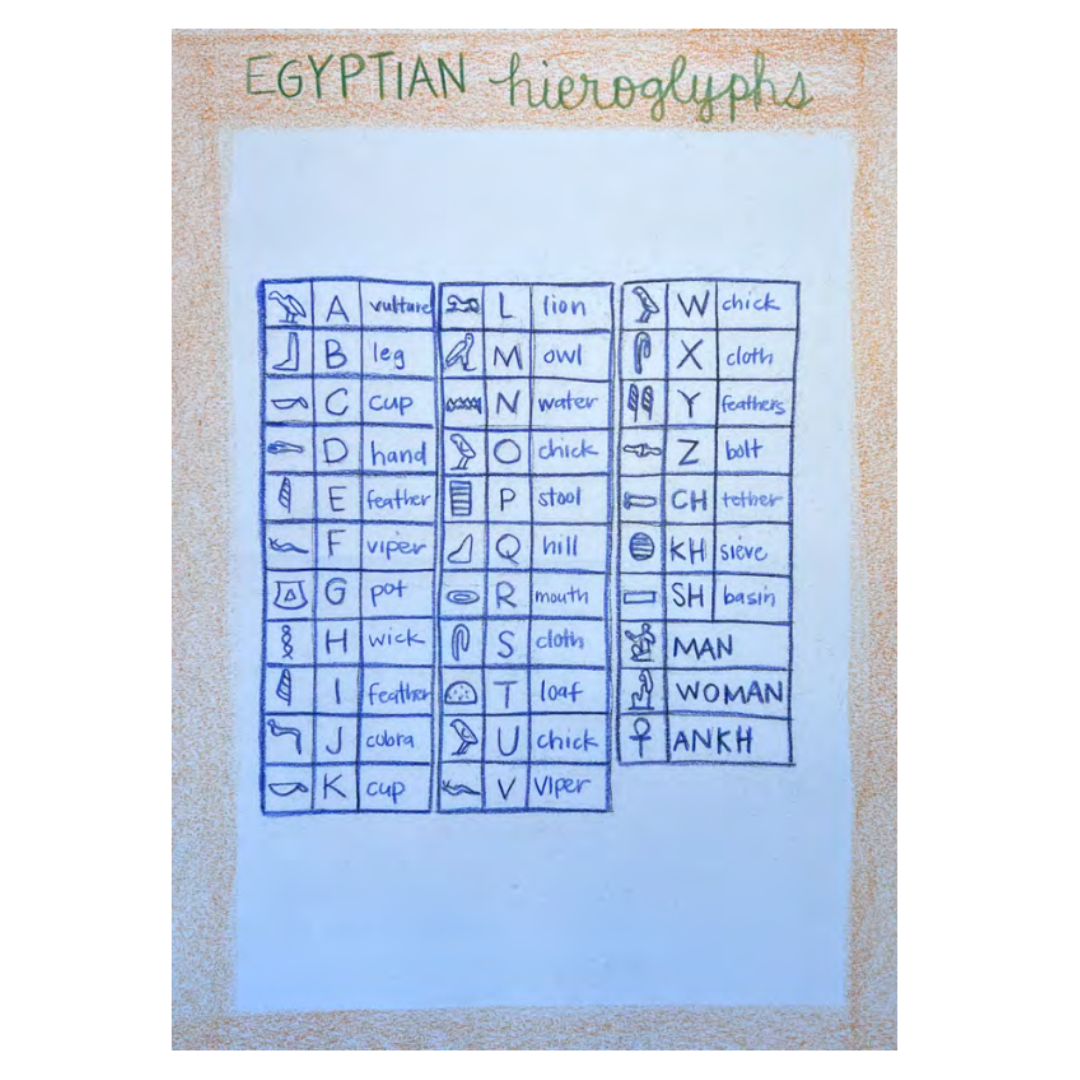 EGYPTIAN hieroglyphs
A vulture
B leg
C cup
D hand
E feather
F viper
G pot
H wick
I feather
J cobra
K cup
L lion
M owl
N water
O chick
P stool
Q hill
R mouth
S cloth
T loaf
U chick
V viper
W chick
X cloth
Y feathers
Z bolt
CH tether
KH sieve
SH basin
MAN
WOMAN
ANKH